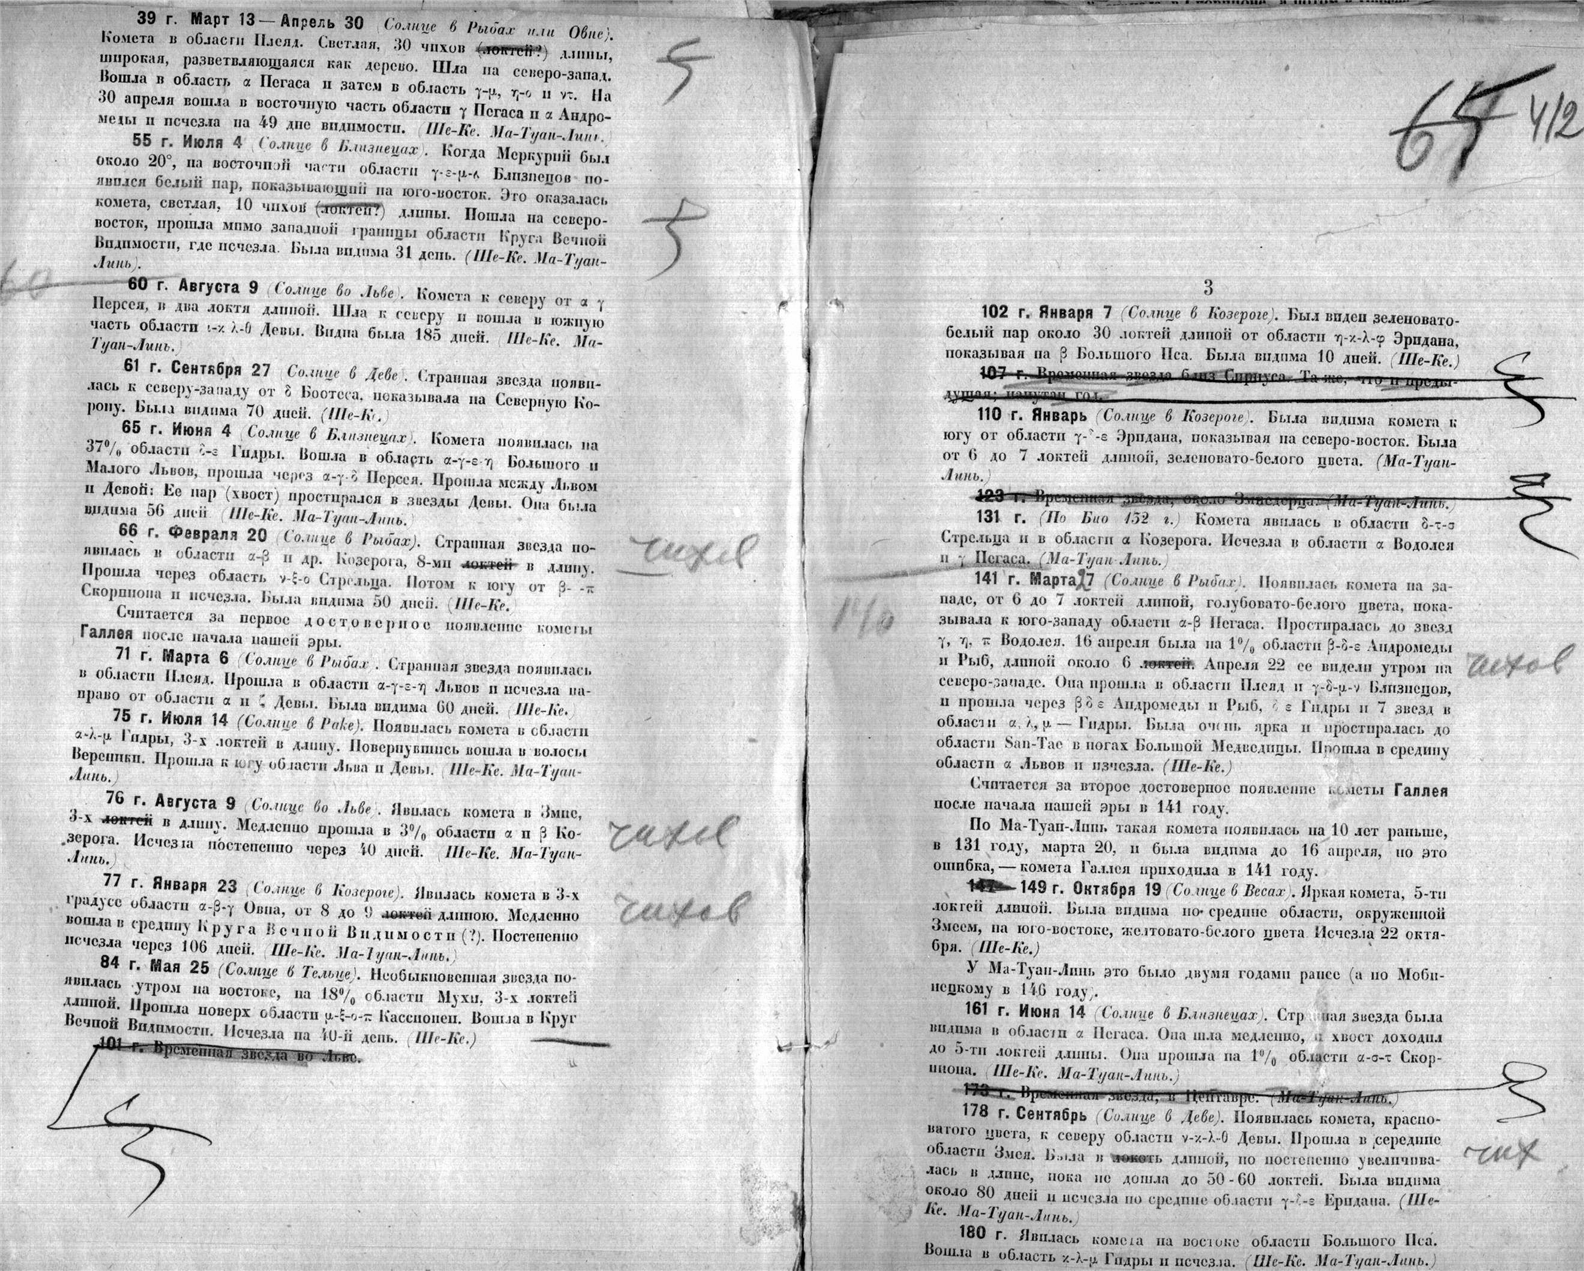 39 г. Март 13 — Апрель 30 (Солнце в Рыбах или Овне).
Комета в области Плеяд. Светлая, 30 чихов (локтей?) длины,
широкая, разветвляющаяся как дерево. Шла на северо-запад.
Вошла в область α Пегаса и затем в область γ-μ, η-ο и ντ. На
30 апреля вошла в восточную часть области γ Пегаса и α Андро-
меды и исчезла на 49 дне видимости. (Ше-Ке. Ма-Туан-Линь.)
55 г. Июля 4 (Солнце в Близнецах). Когда Меркурий был
около 20°, на восточной части области γ-ε-μ- Близнецов по-
явился белый пар, показывающий на юго-восток. Это оказалась
комета, светлая, 10 чихов (локтей?) длины. Пошла на северо-
восток, прошла мимо западной границы области Круга Вечной
Видимости, где исчезла. Была видима 31 день. (Ше-Ке. Ма-Туан-
Линь).
60 г. Августа 9 (Солнце во Льве). Комета к северу от α γ
Персея, в два локтя длиной. Шла к северу и вошла в южную
часть области ι-κ λ-θ Девы. Видна была 185 дней. (Ше-Ке. Ма-
Туан-Линь.)
61 г. Сентября 27 (Солнце в Деве). Странная звезда появи-
лась к северу-западу от δ Боотеса, показывала на Северную Ко-
рону. Была видима 70 дней. (Ше-Ке.)
65 г. Июня 4 (Солнце в Близнецах). Комета появилась на
37% области δ-ε Гидры. Вошла в область α-γ-ε-η Большого и
Малого Львов, прошла через α-γ-δ Персея. Прошла между Львом
и Девой: Ее пар (хвост) простирался в звезды Девы. Она была
видима 56 дней (Ше-Ке. Ма-Туан-Линь.
66 г. Февраля 20 (Солнце в Рыбах). Странная звезда по-
явилась в области α-β и др. Козерога, 8-ми локтей в длину.
Прошла через область ν-ξ-ο Стрельца. Потом к югу от β- -π
Скорпиона и исчезла. Была видима 50 дней. (Ше-Ке.)
Считается за первое достоверное появление кометы
Галлея после начала нашей эры.
71 г. Марта 6 (Солнце в Рыбах . Странная звезда появилась
в области Плеяд. Прошла в области α-γ-ε-η Львов и исчезла на-
право от области α и ζ Девы. Была видима 60 дней. (Ше-Ке.)
75 г. Июля 14 (Солнце в Раке). Появилась комета в области
α-λ-μ Гидры, 3-х локтей в длину. Повернувшись вошла в волосы
Вереники. Прошла к югу области Льва и Девы. (Ше-Ке. Ма-Туан-
Линь.)
76 г. Августа 9 (Солнце во Льве). Явилась комета в Змие,
3-х локтей в длину. Медленно прошла в 3% области α и β Ко-
зерога. Исчезла постепенно через 40 дней. (Ше-Ке. Ма-Туан-
Линь.)
77 г. Января 23 (Солнце в Козероге). Явилась комета в 3-х
градусе области α-β-γ Овна, от 8 до 9 локтей длиною. Медленно
вошла в средину Круга Вечной Видимости (?). Постепенно
исчезла через 106 дней. (Ше-Ке. Ма-Туан-Линь.)
84 г. Мая 25 (Солнце в Тельце). Необыкновенная звезда по-
явилась утром на востоке, на 18% области Мухи, 3-х локтей
длиной. Прошла поверх области μ-ξ-ο-π Кассиопеи. Вошла в Круг
Вечной Видимости. Исчезла на 40-й день. (Ше-Ке.)
101 г. Временная звезда во Льве.
60
чихов
чихов
чихов
412
3
102 г. Января 7 (Солнце в Козероге). Был виден зеленовато-
белый пар около 30 локтей длиной от области η-κ-λ-φ Эридана,
показывая на β Большого Пса. Была видима 10 дней. (Ше-Ке.)
107 г. Временная звезда близ Сириуса. Та же, что и преды-
дущая; напутан год.
110 г. Январь (Солнце в Козероге). Была видима комета к
югу от области γ-δ-ε Эридана, показывая на северо-восток. Была
от 6 до 7 локтей длиной, зеленовато-белого цвета. (Ма-Туан-
Линь.)
123 г. Временная звезда, около Змиедержца. (Ма-Туан-Линь.)
131 г. (По Био 132 г.) Комета явилась в области δ-τ-σ
Стрельца и в области α Козерога. Исчезла в области α Водолея
и γ Пегаса. (Ма-Туан-Линь.)
141 г. Марта 27 (Солнце в Рыбах). Появилась комета на за-
паде, от 6 до 7 локтей длиной, голубовато-белого цвета, пока-
зывала к юго-западу области α-β Пегаса. Простиралась до звезд
γ, η, π Водолея. 16 апреля была на 1% области β-δ-ε Андромеды
и Рыб, длиной около 6 локтей. Апреля 22 ее видели утром на
северо-западе. Она прошла в области Плеяд и γ-δ-μ-ν Близнецов,
и прошла через β δ ε Андромеды и Рыб, δ ε Гидры и 7 звезд в
области α, λ, μ — Гидры. Была очень ярка и простиралась до
области San-Tae в ногах Большой Медведицы. Прошла в средину
области α Львов и изчезла. (Ше-Ке.)
Считается за второе достоверное появление кометы Галлея
после начала нашей эры в 141 году.
По Ма-Туан-Линь такая комета появилась на 10 лет раньше,
в 131 году, марта 20, и была видима до 16 апреля, но это
ошибка, — комета Галлея приходила в 141 году.
149 г. Октября 19 (Солнце в Весах). Яркая комета, 5-ти
локтей длиной. Была видима по средине области, окруженной
Змеем, на юго-востоке, желтовато-белого цвета Исчезла 22 октя-
бря. (Ше-Ке.)
У Ма-Туан-Линь это было двумя годами ранее (а по Моби-
нецкому в 146 году).
161 г. Июня 14 (Солнце в Близнецах). Странная звезда была
видима в области α Пегаса. Она шла медленно, и хвост доходил
до 5-ти локтей длины. Она прошла на 1% области α-σ-τ Скор-
пиона. (Ше-Ке. Ма-Туан-Линь.)
173 г. Временная звезда, в Центавре. (Ма-Туан-Линь.)
178 г. Сентябрь (Солнце в Деве). Появилась комета, красно-
ватого цвета, к северу области ν-κ-λ-θ Девы. Прошла в середине
области Змея. Была в локоть длиной, но постепенно увеличива-
лась в длине, пока не дошла до 50-60 локтей. Была видима
около 80 дней и исчезла по средине области γ-δ-ε Еридана. (Ше-
Ке. Ма-Туан-Линь.)
180 г. Явилась комета на востоке области Большого Пса.
Вошла в область κ-λ-μ Гидры и исчезла. (Ше-Ке. Ма-Туан-Линь.)
чихов
чих